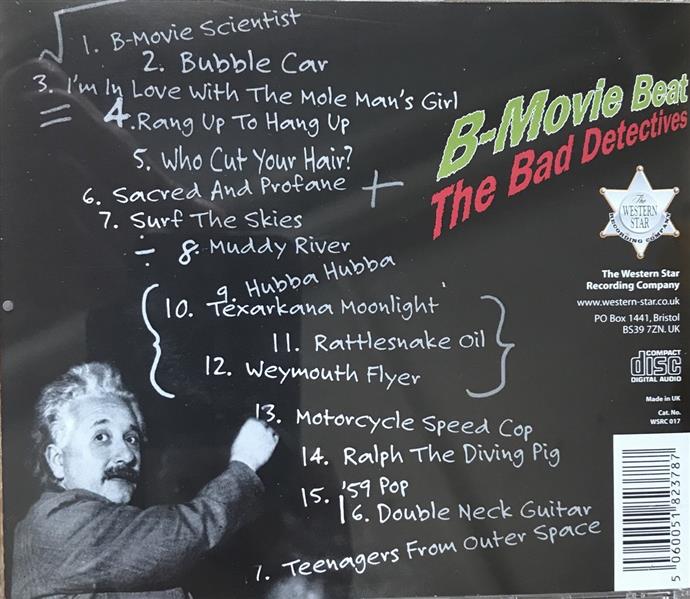 1. B-Movie Scientist
2. Bubble Car
3. I'm In Love With The Mole Man's Girl
= 4. Rang Up To Hang Up
5. Who Cut Your Hair?
6. Sacred And Profane +
7. Surf The Skies
÷ 8. Muddy River
9. Hubba Hubba
10. Texarkana Moonlight
11. Rattlesnake Oil
12. Weymouth Flyer
13. Motorcycle Speed Cop
14. Ralph The Diving Pig
15. '59 Pop
16. Double Neck Guitar
7. Teenagers From Outer Space
B-Movie Beat
The Bad Detectives
The
WESTERN
STAR
RECORDING COMPANY
The Western Star
Recording Company
www.western-star.co.uk
PO Box 1441, Bristol
BS39 7ZN. UK
COMPACT
disc
DIGITAL AUDIO
Made in UK
Cat. No.
WSRC 017
5 060051 823787